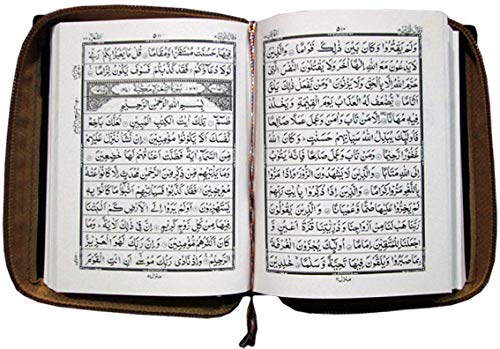 وَلَمْ يَقْتُرُوْا وَكَانَ بَيْنَ ذٰلِكَ قَوَامًا ۝ وَالَّذِيْنَ
لَا يَدْعُوْنَ مَعَ اللّٰهِ اِلٰهًا اٰخَرَ وَلَا يَقْتُلُوْنَ النَّفْسَ الَّتِيْ
حَرَّمَ اللّٰهُ اِلَّا بِالْحَقِّ وَلَا يَزْنُوْنَ وَمَنْ يَّفْعَلْ ذٰلِكَ يَلْقَ
اَثَامًا ۝ يُّضٰعَفْ لَهُ الْعَذَابُ يَوْمَ الْقِيٰمَةِ وَيَخْلُدْ
فِيْهٖ مُهَانًا ۝ اِلَّا مَنْ تَابَ وَاٰمَنَ وَعَمِلَ عَمَلًا صَالِحًا
فَاُولٰٓئِكَ يُبَدِّلُ اللّٰهُ سَيِّاٰتِهِمْ حَسَنٰتٍ وَكَانَ اللّٰهُ
غَفُوْرًا رَّحِيْمًا ۝ وَمَنْ تَابَ وَعَمِلَ صَالِحًا فَاِنَّهٗ يَتُوْبُ
اِلَى اللّٰهِ مَتَابًا ۝ وَالَّذِيْنَ لَا يَشْهَدُوْنَ الزُّوْرَ وَاِذَا مَرُّوْا
بِاللَّغْوِ مَرُّوْا كِرَامًا ۝ وَالَّذِيْنَ اِذَا ذُكِّرُوْا بِاٰيٰتِ رَبِّهِمْ
لَمْ يَخِرُّوْا عَلَيْهَا صُمًّا وَّعُمْيَانًا ۝ وَالَّذِيْنَ يَقُوْلُوْنَ
رَبَّنَا هَبْ لَنَا مِنْ اَزْوَاجِنَا وَذُرِّيّٰتِنَا قُرَّةَ اَعْيُنٍ وَّ
اجْعَلْنَا لِلْمُتَّقِيْنَ اِمَامًا ۝ اُولٰٓئِكَ يُجْزَوْنَ الْغُرْفَةَ
بِمَا صَبَرُوْا وَيُلَقَّوْنَ فِيْهَا تَحِيَّةً وَّسَلٰمًا ۝ خٰلِدِيْنَ
فِيْهَا حَسُنَتْ مُسْتَقَرًّا وَّمُقَامًا ۝ قُلْ مَا يَعْبَؤُا بِكُمْ رَبِّيْ
لَوْلَا دُعَآؤُكُمْ فَقَدْ كَذَّبْتُمْ فَسَوْفَ يَكُوْنُ لِزَامًا ۝
بِسْمِ اللّٰهِ الرَّحْمٰنِ الرَّحِيْمِ
طٰسٓمّٓ ۝ تِلْكَ اٰيٰتُ الْكِتٰبِ الْمُبِيْنِ ۝ لَعَلَّكَ بَاخِعٌ
نَّفْسَكَ اَلَّا يَكُوْنُوْا مُؤْمِنِيْنَ ۝ اِنْ نَّشَاْ نُنَزِّلْ عَلَيْهِمْ
مِّنَ السَّمَآءِ اٰيَةً فَظَلَّتْ اَعْنَاقُهُمْ لَهَا خٰضِعِيْنَ ۝
وَمَا يَاْتِيْهِمْ مِّنْ ذِكْرٍ مِّنَ الرَّحْمٰنِ مُحْدَثٍ اِلَّا كَانُوْا عَنْهُ
مُعْرِضِيْنَ ۝ فَقَدْ كَذَّبُوْا فَسَيَاْتِيْهِمْ اَنْۢبٰٓؤُا مَا كَانُوْا بِهٖ
يَسْتَهْزِءُوْنَ ۝ اَوَلَمْ يَرَوْا اِلَى الْاَرْضِ كَمْ اَنْۢبَتْنَا
فِيْهَا مِنْ كُلِّ زَوْجٍ كَرِيْمٍ ۝ اِنَّ فِيْ ذٰلِكَ لَاٰيَةً وَمَا
كَانَ اَكْثَرُهُمْ مُّؤْمِنِيْنَ ۝ وَاِنَّ رَبَّكَ لَهُوَ الْعَزِيْزُ
الرَّحِيْمُ ۝ وَاِذْ نَادٰى رَبُّكَ مُوْسٰٓى اَنِ ائْتِ الْقَوْمَ